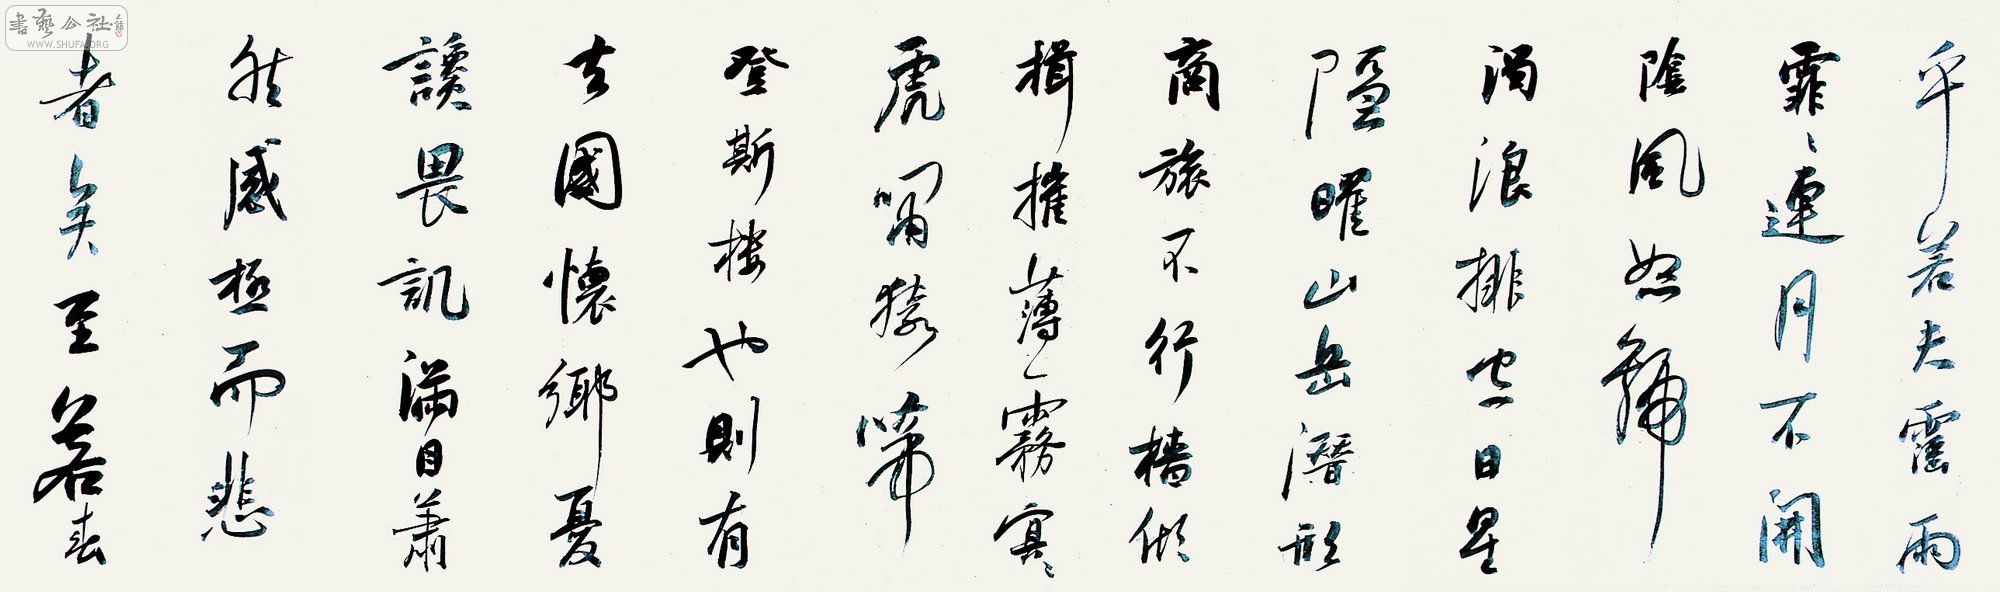 乎若夫霪雨
霏〻連月不開
陰風怒號
濁浪排空日星
隱曜山岳潛形
商旅不行檣傾
楫摧薄〻霧冥〻
虎嘯猿啼
登斯樓也則有
去國懷鄉憂
讒畏譏滿目蕭
然感極而悲
者矣至若春
書藝公社
WWW.SHUFA.ORG